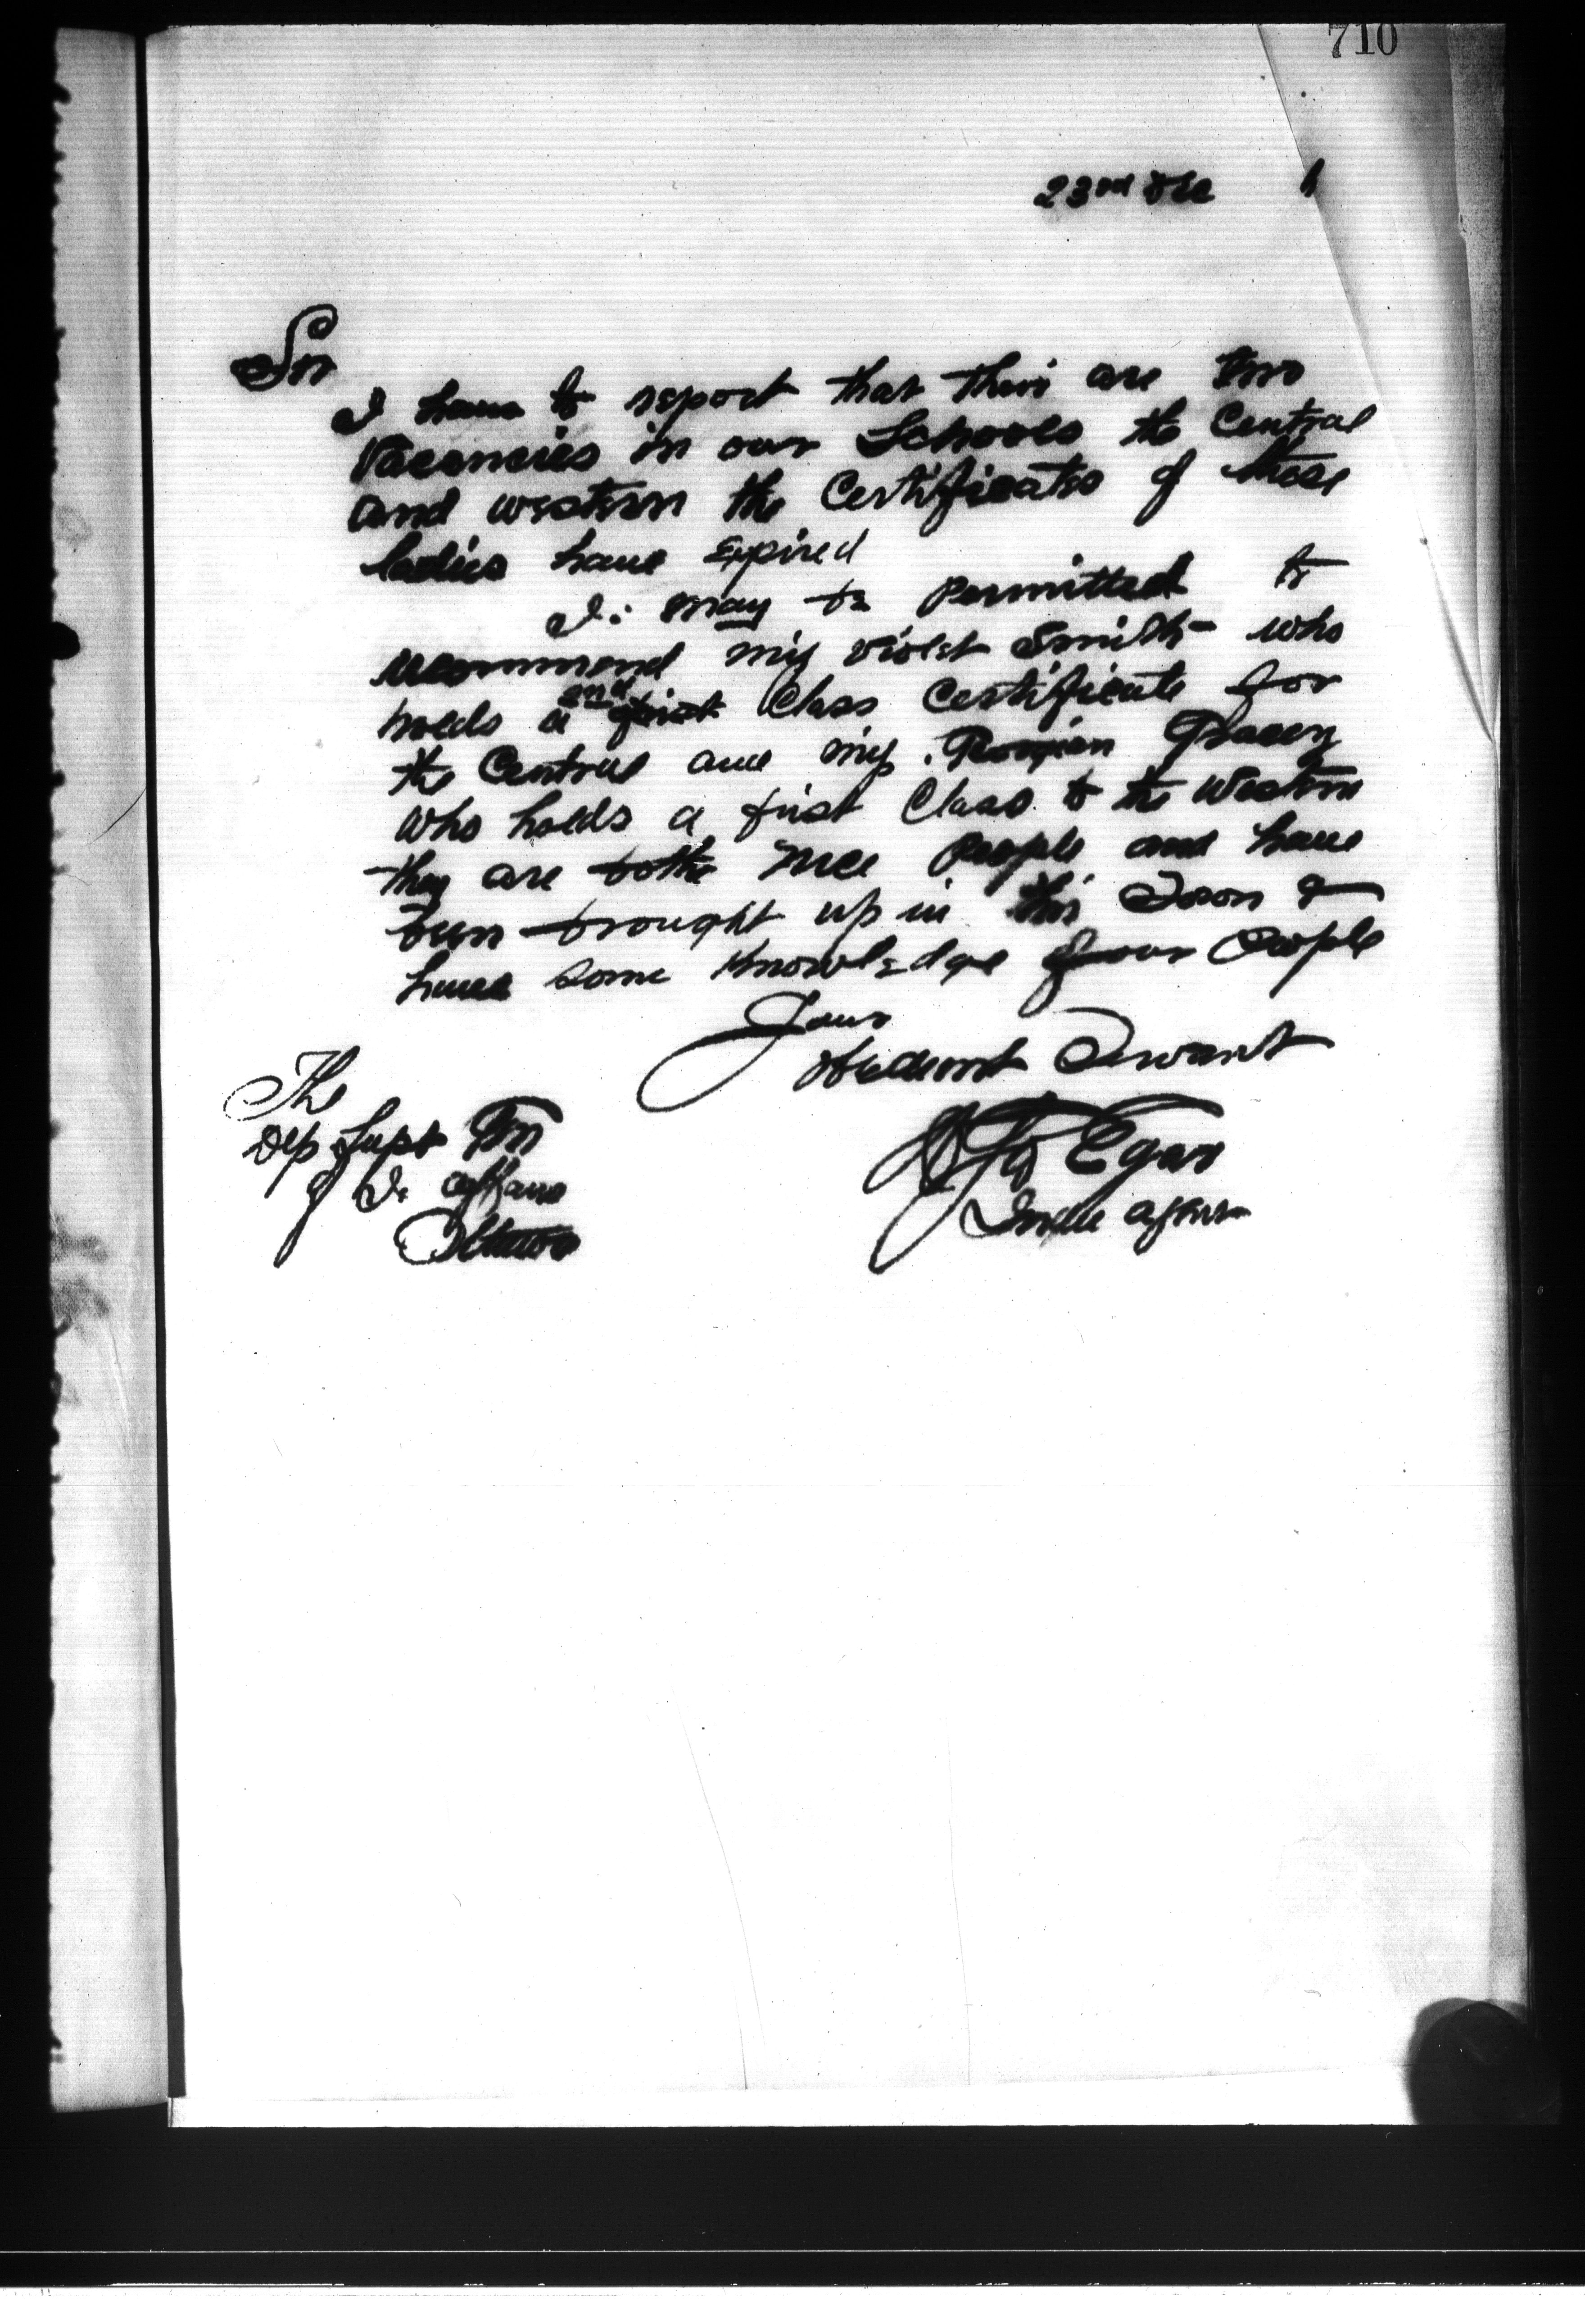 710
23rd Dec 1
Sir
I have to report that their are two
Vacancies in our Schools the Central
and western the Certificates of these
ladies have Expired
I. may be permitted to
recommend Miss Violet Smith who
holds a 2nd first Class Certificate for
the Central and Miss Gracey
who holds a first Class to the Western
they are both nice people and have
been brought up in this Town &
have some Knowledge of our People
Your
Obedient Servant
The
Dep Supt Gn
of I. Affairs
Ottawa
Egan
Indian Agent